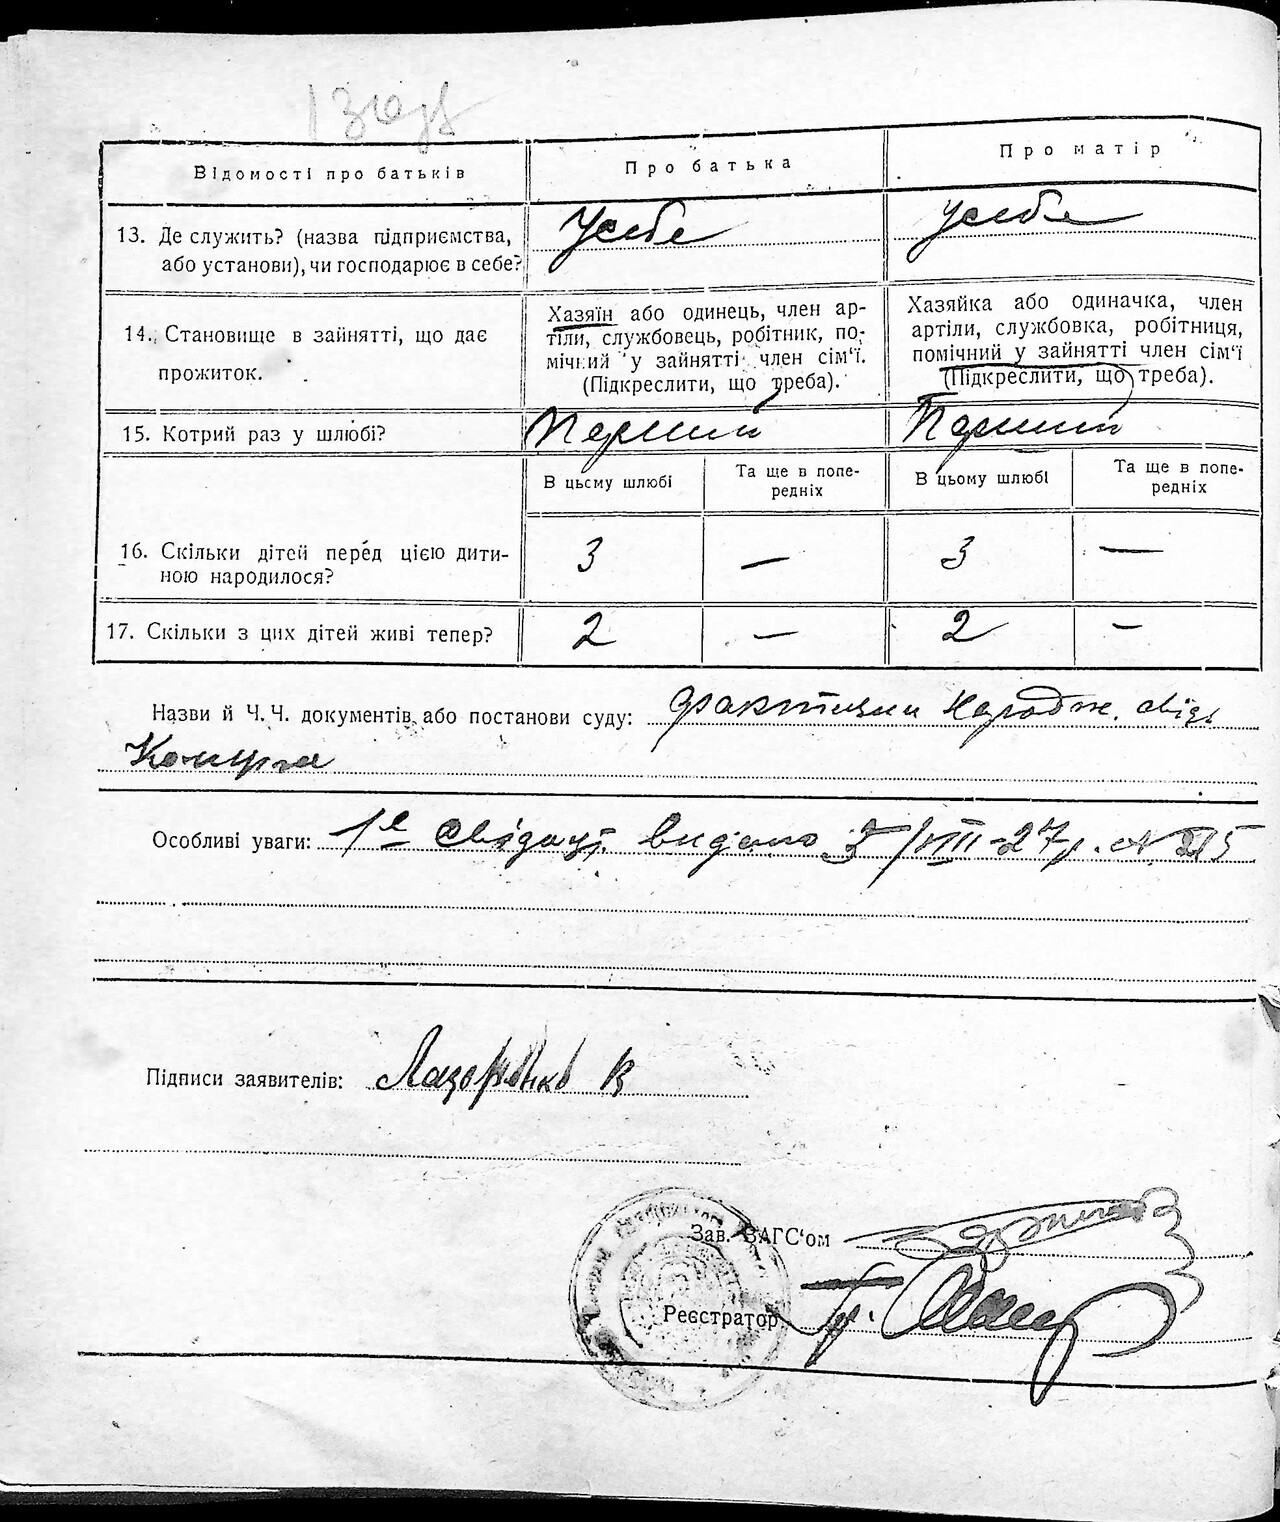 Відомості про батьків
Про батька
Про матір
13. Де служить? (назва підприємства,
або установи), чи господарює в себе?
У себе
У себе
14. Становище в зайнятті, що дає
прожиток.
Хазяїн або одинець, член ар-
тіли, службовець, робітник, по-
мічний у зайнятті член сім'ї.
(Підкреслити, що треба).
Хазяйка або одиначка, член
артіли, службовка, робітниця,
помічний у зайнятті член сім'ї
(Підкреслити, що треба).
15. Котрий раз у шлюбі?
Перший
Перший
В цьому шлюбі
Та ще в попе-
редніх
В цьому шлюбі
Та ще в попе-
редніх
16. Скільки дітей перед цією дити-
ною народилося?
3
—
3
—
17. Скільки з цих дітей живі тепер?
2
—
2
—
Назви й Ч. Ч. документів або постанови суду: народж.
Особливі уваги: 1е свідоцт. видано /VIII-27р. №
Підписи заявителів: Лазоренко
Зав. ЗАГС'ом
Реєстратор